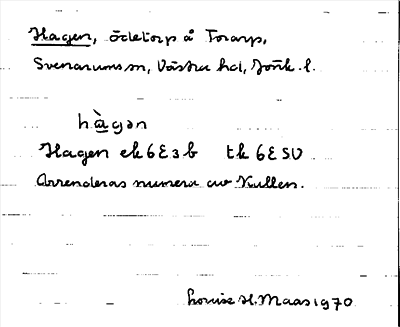 Hagen, ödetorp å Torarp,
Svenarums sn, Västra hd, Jönk. l.
hàgən
Hagen ek 6E3b tk 6E SV
Arrenderas numera av Kullen.
Louise H. Maas 1970